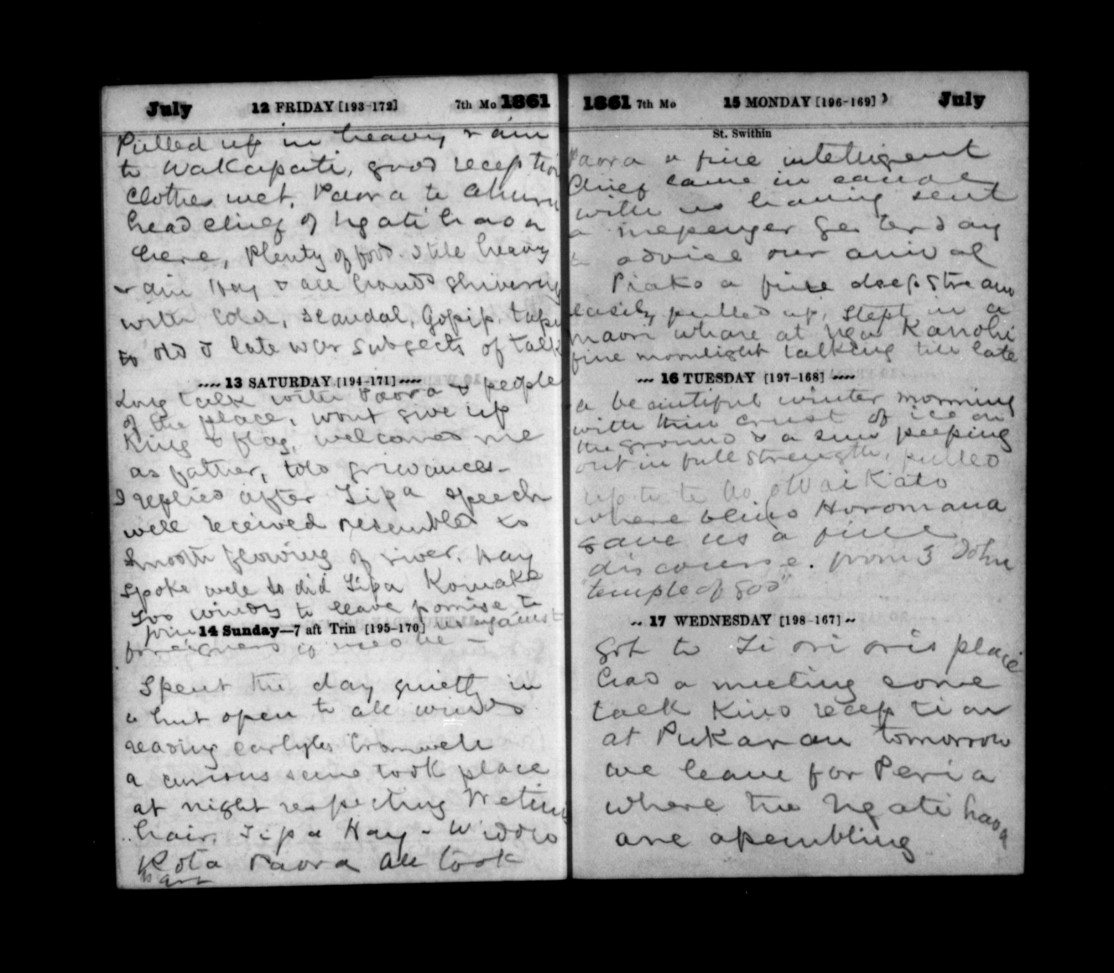 July 12 FRIDAY [193-172] 7th Mo 1861
Pulled up in heavy rain
to Wakapati, good reception
Clothes wet, Paora te
head chief of Ngati haoa
here, Plenty of food still heavy
rain Hay & all hands shivering
with cold, scandal, Gossip
old & late war subjects of talk
13 SATURDAY [194-171]
Long talk with Paora & people
of the place, wont give up
King & flag, welcomes me
as father, told grievances-
I replied after Tipa speech
well received resembled to
smooth flowing of river. Hay
spoke well so did Tipa
Too windy to leave promise to
join us against
14 Sunday—7 aft Trin [195-170]
foreigners if need be
Spent the day quietly in
a hut open to all winds
reading Carlyles Cromwell
a curious scene took place
at night respecting
hair, Tipa Hay - Widow
Paora all took
part
1861 7th Mo 15 MONDAY [196-169] July
St. Swithin
Paora a fine intelligent
Chief came in canoe
with us having sent
a messenger yesterday
to advise our arrival
Piako a fine deep stream
easily pulled up, slept in a
maori whare at Nga Kanohi
fine moonlight talking till late
16 TUESDAY [197-168]
a beautiful winter morning
with thin crust of ice on
the ground & a sun peeping
out in full strength, pulled
up to te Waikato
where blind Horomana
gave us a fine
discourse. from 3 John
"temple of god"
17 WEDNESDAY [198-167]
Got to Ti ori oris place
had a meeting some
talk Kind reception
at Pukarau tomorrow
we leave for Peria
where the Ngati haoa
are assembling